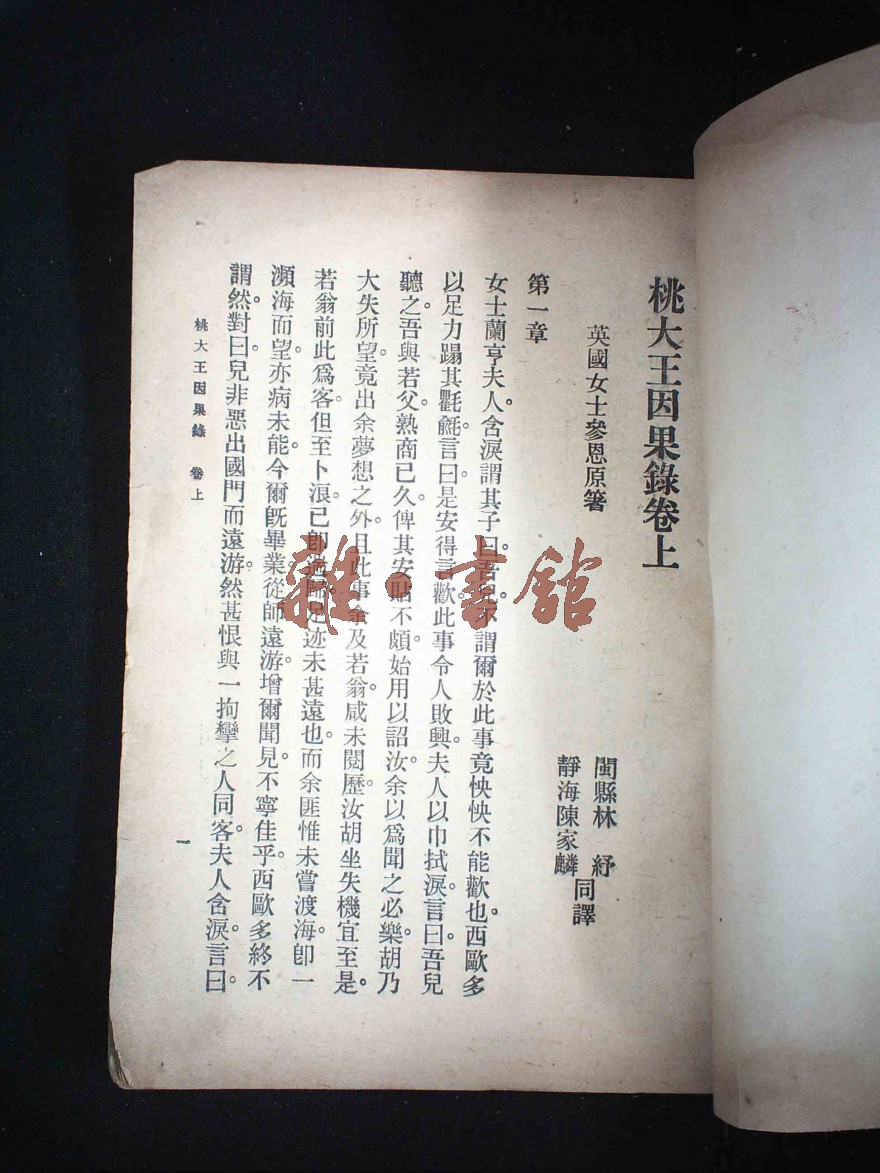 桃大王因果錄卷上
英國女士參恩原箸
閩縣林　紓
靜海陳家麟
同譯
第一章
女士蘭亨夫人。含淚謂其子曰。吾不謂爾於此事竟怏怏不能歡也。西歐多
以足力蹋其氍毹。言曰。是安得言歡。此事令人敗興。夫人以巾拭淚。言曰。吾兒
聽之。吾與若父熟商已久。俾其安貼不頗。始用以詔汝。余以爲聞之必樂。胡乃
大失所望。竟出余夢想之外。且此事余及若翁。咸未閱歷。汝胡坐失機宜至是。
若翁前此爲客。但至卜浪。已卽歸。足迹未甚遠也。而余匪惟未嘗渡海。卽一
瀕海而望。亦病未能。今爾旣畢業。從師遠游。增爾聞見。不寧佳乎。西歐多終不
謂然。對曰。兒非惡出國門而遠游。然甚恨與一拘攣之人同客。夫人含淚。言曰。
桃大王因果錄　卷上
一
雜·書館